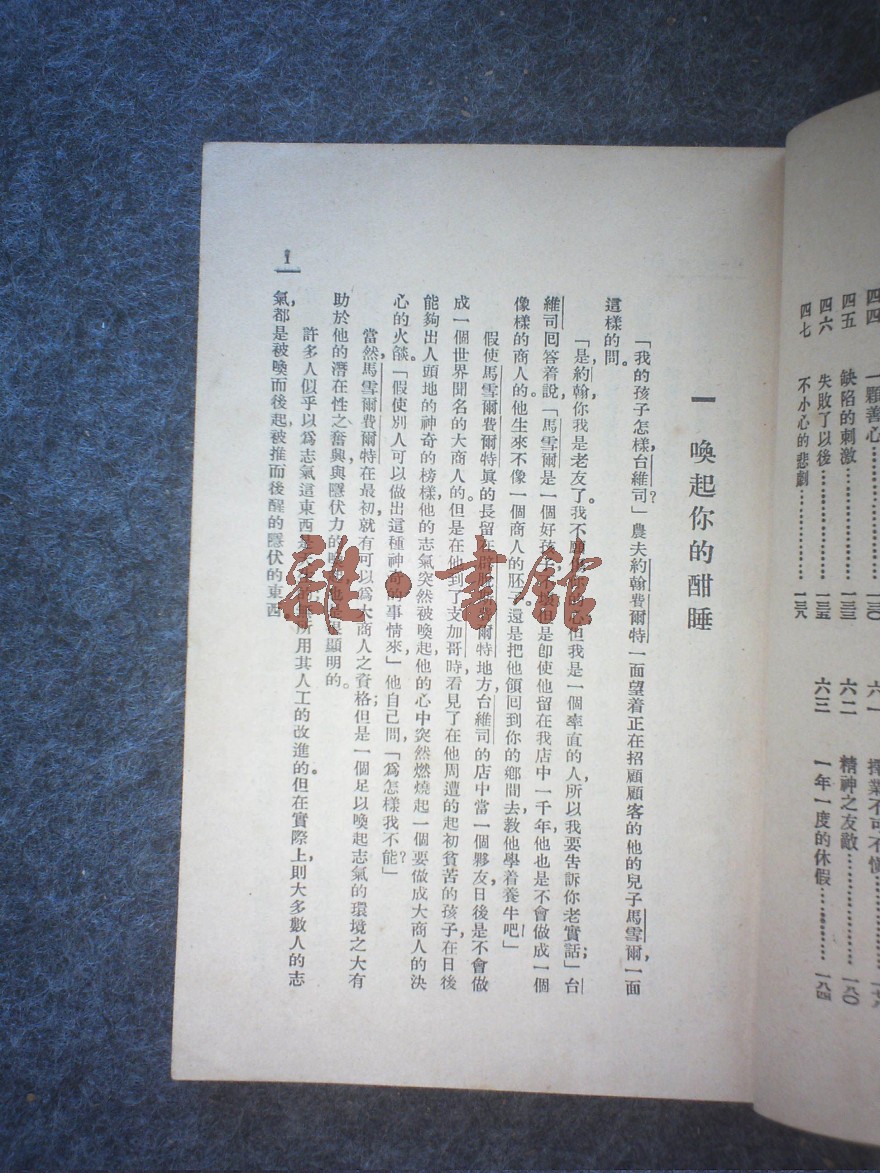 四四 一顆善心……一三〇
四五 缺陷的刺激……一三三
四六 失敗了以後……一三五
四七 不小心的悲劇……一三八
六一 擇業不可不慎……一七八
六二 精神之友敵……一八〇
六三 一年一度的休假……一八四
一 喚起你的酣睡
「我的孩子怎樣,台維司?」農夫約翰費爾特一面望着正在招顧顧客的他的兒子馬雪爾,一面
這樣的問。
「是,約翰,你我是老友了。我不願 但我是一個率直的人,所以我要告訴你老實話;」台
維司回答着說,「馬雪爾是一個好孩子 但是卽使他留在我店中一千年,他也是不會做成一個
像樣的商人的。他生來不像一個商人的胚子。還是把他領回到你的鄉間去,敎他學着養牛吧!」
假使馬雪爾費爾特眞的長留在 費爾特地方台維司的店中當一個夥友,日後是不會做
成一個世界聞名的大商人的。但是在他到了支加哥時,看見了在他周遭的起初貧苦的孩子,在日後
能夠出人頭地的神奇的榜樣,他的志氣突然被喚起,他的心中突然燃燒起一個要做成大商人的決
心的火燄。「假使別人可以做出這種神奇的事情來,」他自己問,「爲怎樣我不能?」
當然,馬雪爾費爾特在最初,就有可以爲大商人之資格;但是一個足以喚起志氣的環境之大有
助於他的潛在性之奮興與隱伏力的 顯明的。
許多人似乎以爲志氣這東西是 所用其人工的改進的。但在實際上,則大多數人的志
氣,都是被喚而後起,被推而後醒的隱伏的東西
一
雜·書館